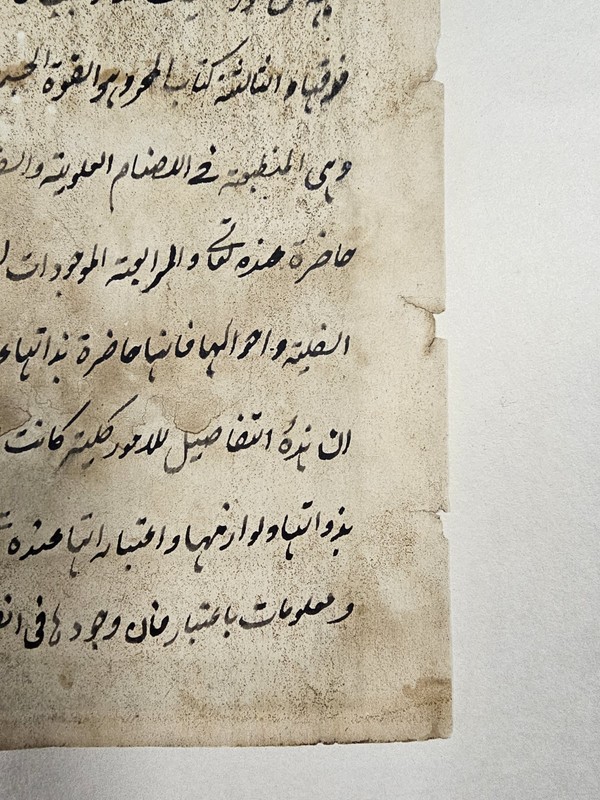 فوقها والثالثة كتاب المحو وهو القوة
وهى المنطبعة فے الاجسام العلوية
حاضرة عنده تعالی والمرابعة الموجودات
السفلية واحوالها فانها حاضرة بذاتها
ان هذه التفاصيل للامور كلية كانت
بذواتها ولوازمها واعتباراتها عنده
ومعلومات باعتبار فان وجودها فى